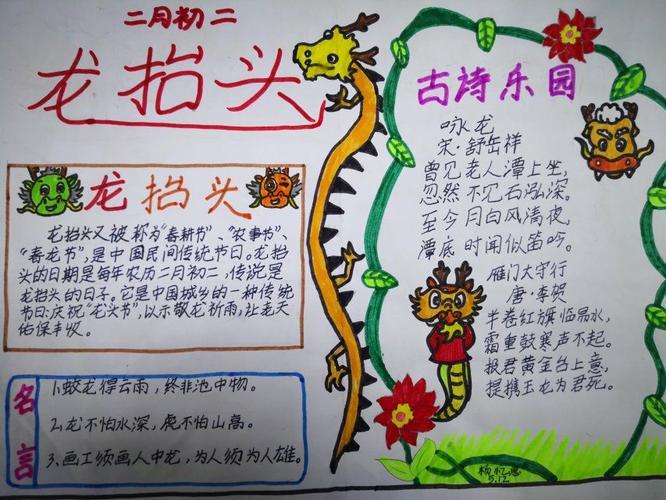 二月初二
龙抬头
龙抬头
龙抬头又被称为“春耕节”、“农事节”、
“春龙节”,是中国民间传统节日。龙抬
头的日期是每年农历二月初二,传说是
龙抬头的日子。它是中国城乡的一种传统
节日庆祝“龙头节”,以示敬龙祈雨,让老天
佑保丰收。
名言
1.蛟龙得云雨，终非池中物。
2.龙不怕水深，虎不怕山高。
3.画工须画人中龙，为人须为人雄。
古诗乐园
咏龙
宋·舒岳祥
曾见老人潭上坐,
忽然不见石泓深。
至今月白风清夜,
潭底时闻似笛吟。
雁门太守行
唐·李贺
半卷红旗临易水,
霜重鼓寒声不起。
报君黄金台上意,
提携玉龙为君死。
5.12